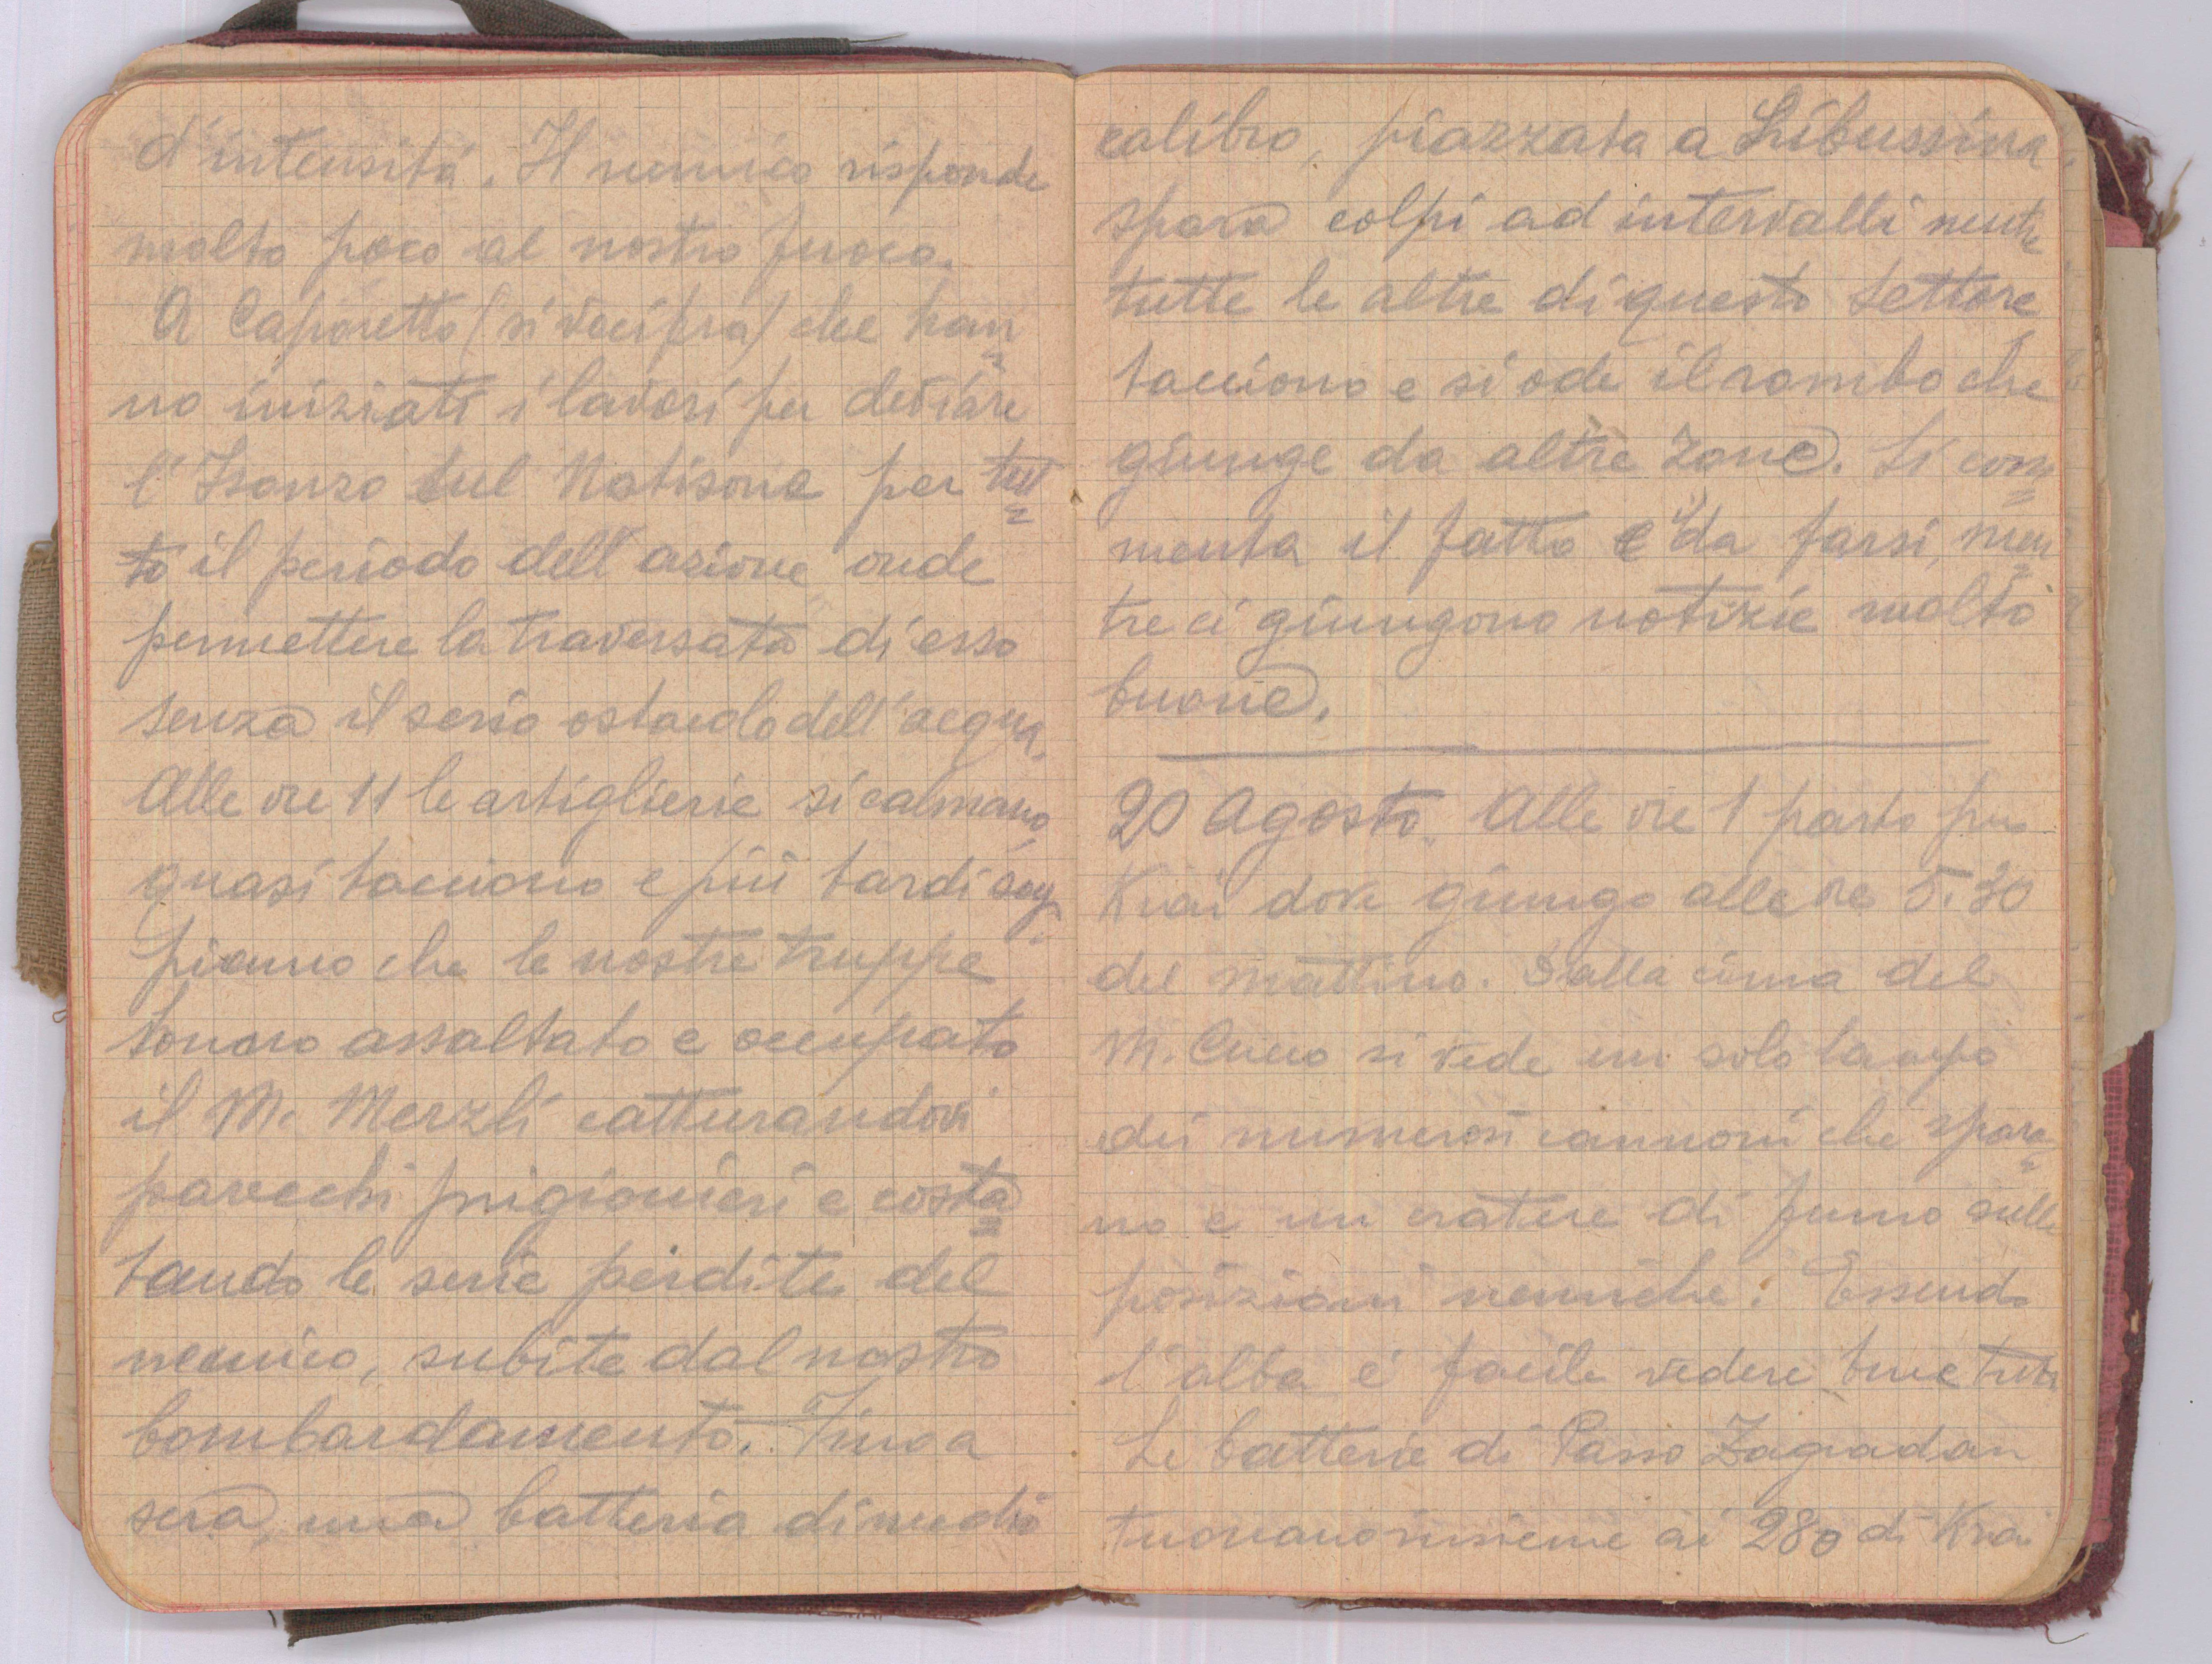 d'intensitá. Il nemico risponde
molto poco al nostro fuoco.
A Caporetto (si vocifera) che han=
no iniziati i lavori per deviare
l'Isonzo sul Natisone per tut=
to il periodo dell'azione onde
permettere la traversata di esso
senza il serio ostacolo dell'acqua.
Alle ore 11 le artiglierie si calmano,
quasi tacciono e piú tardi sap=
piamo che le nostre truppe
hanno assaltato e occupato
il M. Merzli catturandovi
parecchi prigionieri e costa=
tando le serie perdite del
nemico, subite dal nostro
bombardamento. Fino a
sera, una batteria di medio
calibro, piazzata a Libussina,
spara colpi ad intervalli mentre
tutte le altre di questo settore
tacciono e si ode il rombo che
giunge da altre zone. Si com=
menta il fatto e il da farsi, men=
tre ci giungono notizie molto
buone.
20 Agosto. Alle ore 1 parto per
Krai dove giungo alle ore 5.30
del mattino. Dalla cima del
M. Cucco si vede un solo lampo
dei numerosi cannoni che spara=
no e un cratere di fumo sulle
posizioni nemiche. Essendo
l'alba é facile vedere bene tutto
Le batterie di Passo Zagradan
tuonano insieme ai 280 di Krai